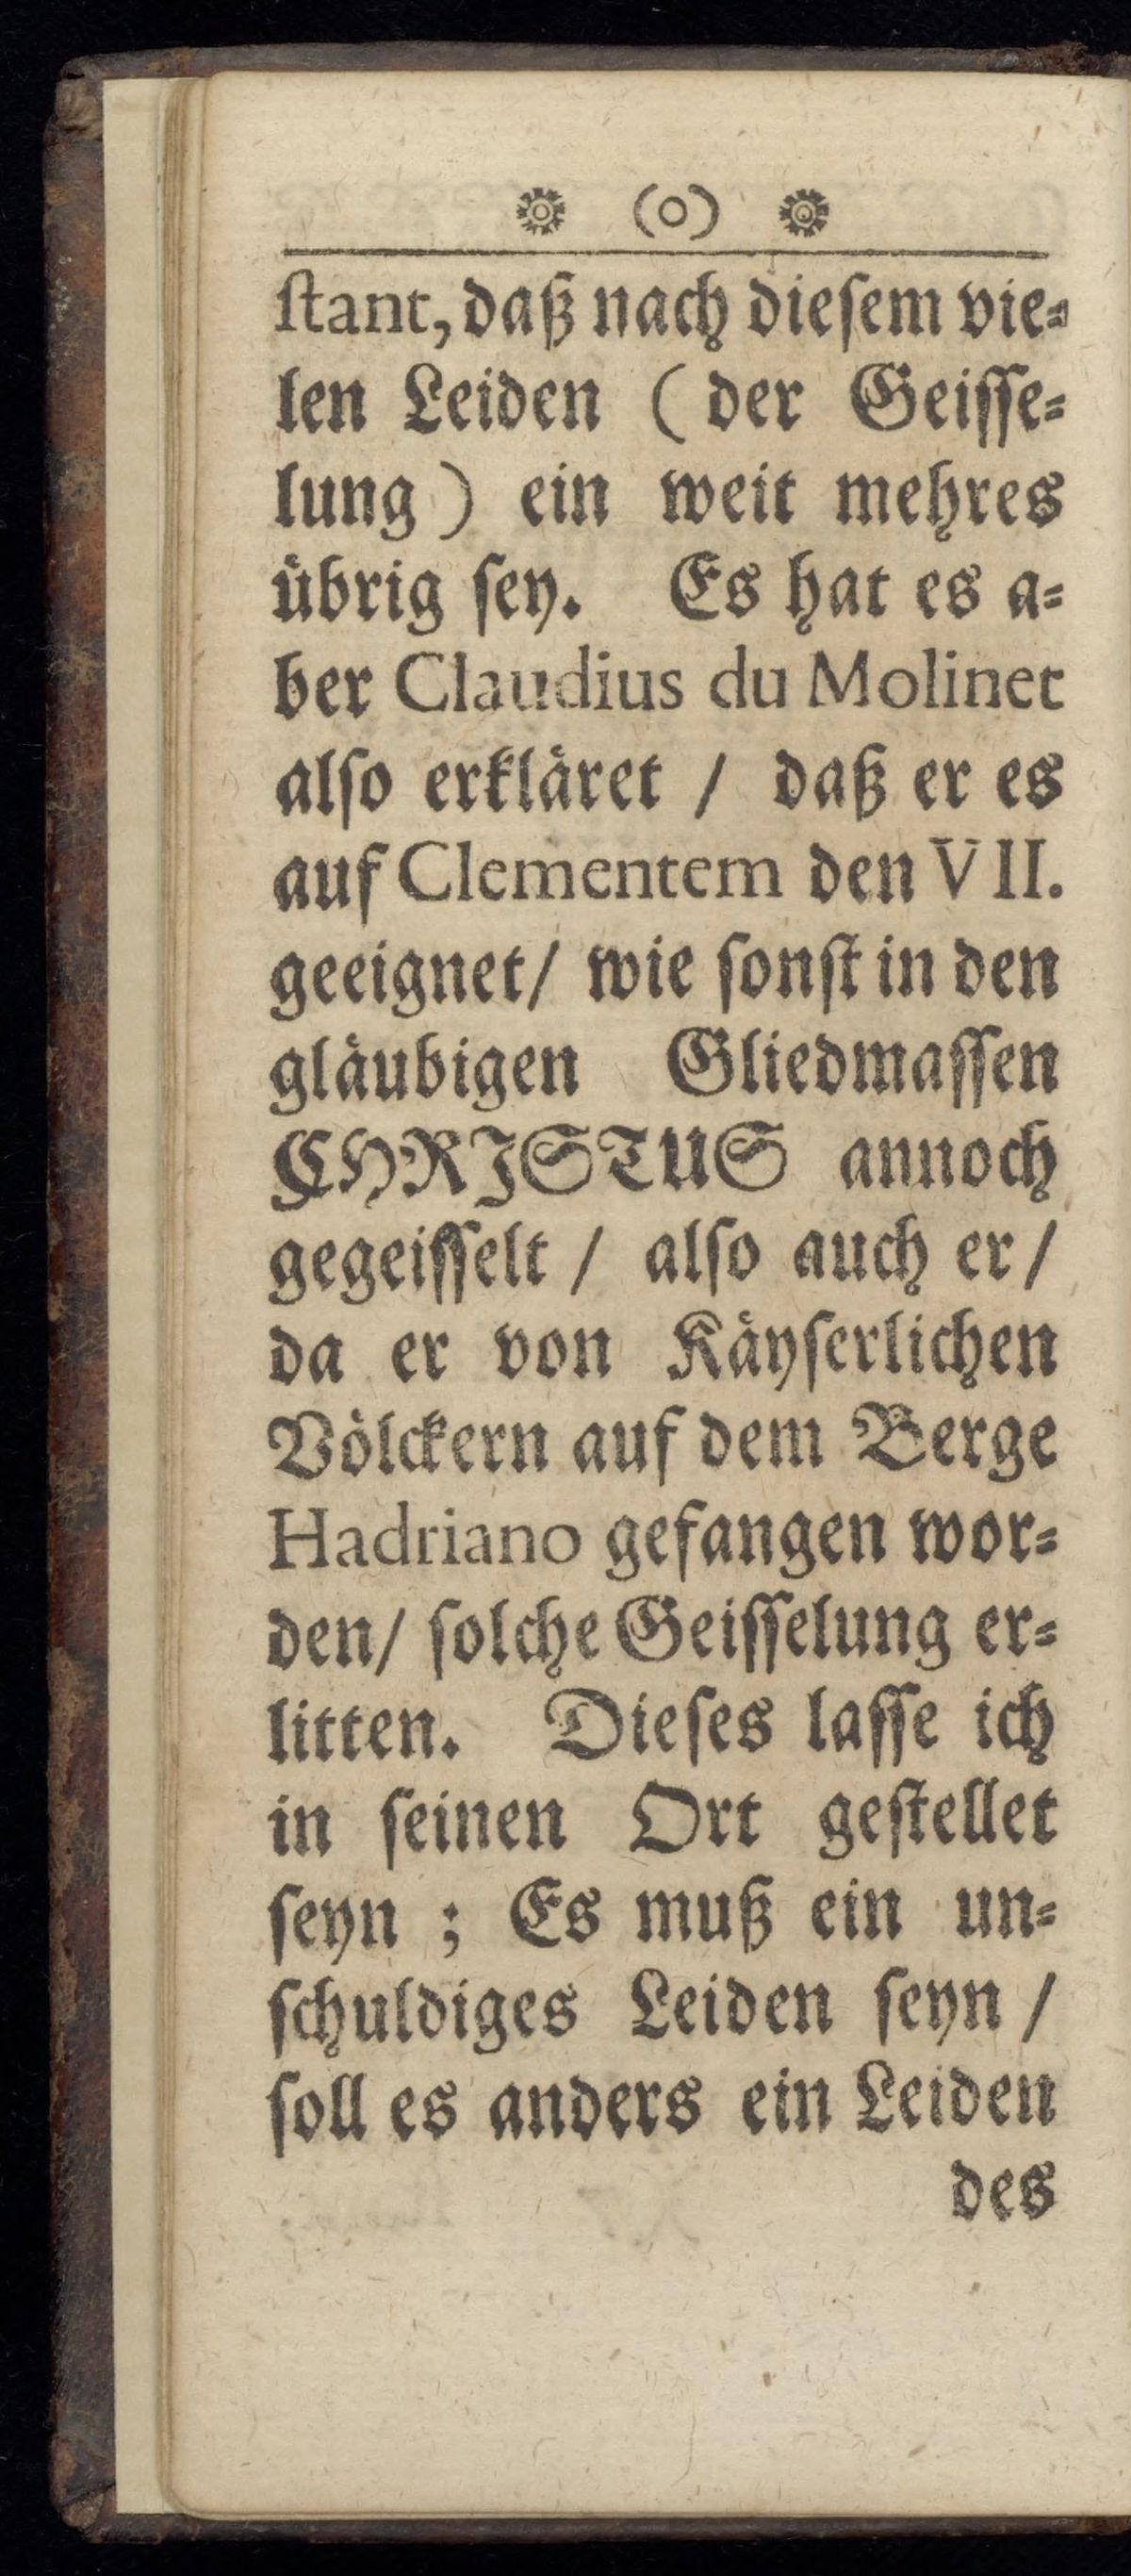 ❁ (o) ❁
ſtant, daß nach dieſem vie⸗
len Leiden ( der Geiſſe⸗
lung ) ein weit mehres
uͤbrig ſey. Es hat es a⸗
ber Claudius du Molinet
alſo erklaͤret / daß er es
auf Clementem den VII.
geeignet/ wie ſonſt in den
glaͤubigen Gliedmaſſen
CHRISTUS annoch
gegeiſſelt / alſo auch er /
da er von Kaͤyſerlichen
Voͤlckern auf dem Berge
Hadriano gefangen wor⸗
den/ ſolche Geiſſelung er⸗
litten. Dieſes laſſe ich
in ſeinen Ort geſtellet
ſeyn ; Es muß ein un⸗
ſchuldiges Leiden ſeyn /
ſoll es anders ein Leiden
des